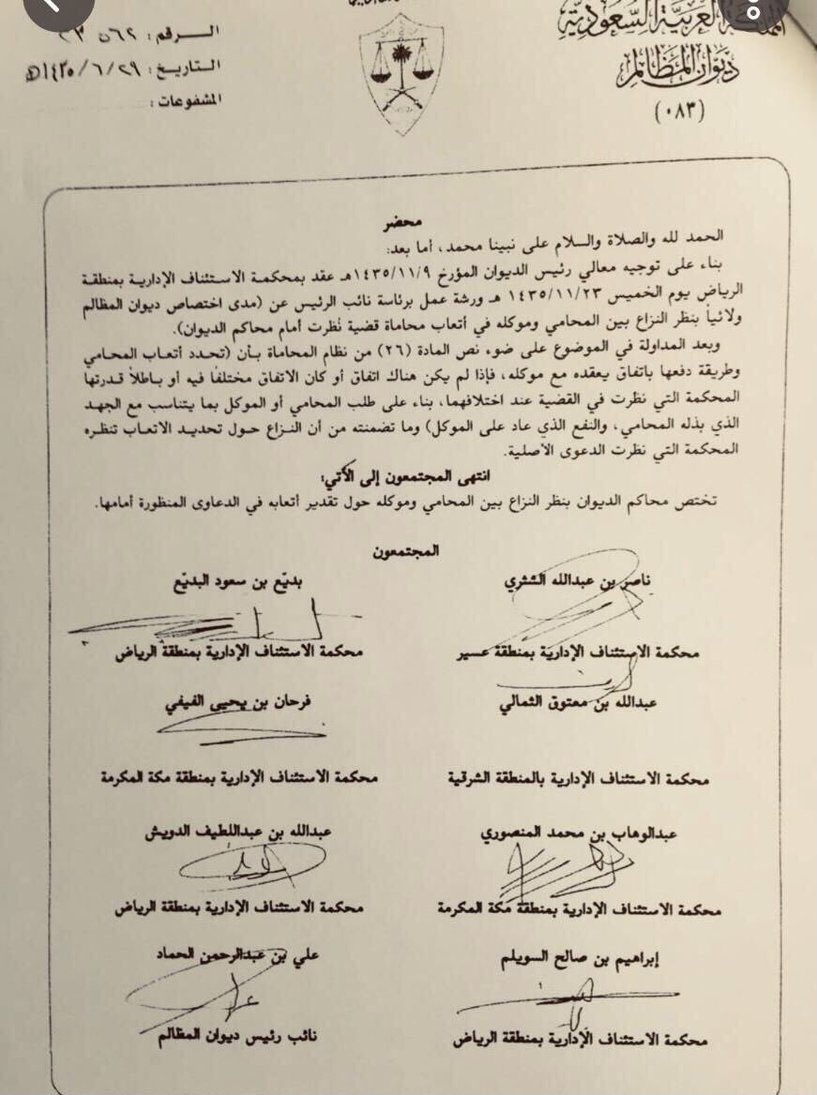 المملكة العربية السعودية
ديوان المظالم
(٠٨٣)
الـرقم:
التاريخ: ١٤٣٥/٦/٢٩هـ
المشفوعات:
محضر
الحمد لله والصلاة والسلام على نبينا محمد، أما بعد:
بناء على توجيه معالي رئيس الديوان المؤرخ ١٤٣٥/١١/٩هـ عقد بمحكمة الاستئناف الإدارية بمنطقة
الرياض يوم الخميس ١٤٣٥/١١/٢٣ هـ ورشة عمل برئاسة نائب الرئيس عن (مدى اختصاص ديوان المظالم
ولائياً بنظر النزاع بين المحامي وموكله في أتعاب محاماة قضية نُظرت أمام محاكم الديوان).
وبعد المداولة في الموضوع على ضوء نص المادة (٢٦) من نظام المحاماة بـأن (تحدد أتعاب المحامي
وطريقة دفعها باتفاق يعقده مع موكله، فإذا لم يكن هناك اتفاق أو كان الاتفاق مختلفًا فيه أو باطلاً قدرتها
المحكمة التي نظرت في القضية عند اختلافهما، بناء على طلب المحامي أو الموكل بما يتناسب مع الجهد
الذي بذله المحامي، والنفع الذي عاد على الموكل) وما تضمنته من أن النزاع حول تحديد الاتعاب تنظره
المحكمة التي نظرت الدعوى الأصلية.
انتهى المجتمعون إلى الآتي:
تختص محاكم الديوان بنظر النزاع بين المحامي وموكله حول تقدير أتعابه في الدعاوى المنظورة أمامها.
المجتمعون
ناصر بن عبدالله الشثري
بديّع بن سعود البديّع
محكمة الاستئناف الإدارية بمنطقة عسير
محكمة الاستئناف الإدارية بمنطقة الرياض
عبدالله بن معتوق الثمالي
فرحان بن يحيى الفيفي
محكمة الاستئناف الإدارية بالمنطقة الشرقية
محكمة الاستئناف الإدارية بمنطقة مكة المكرمة
عبدالوهاب بن محمد المنصوري
عبدالله بن عبداللطيف الدويش
محكمة الاستئناف الإدارية بمنطقة مكة المكرمة
محكمة الاستئناف الإدارية بمنطقة الرياض
إبراهيم بن صالح السويلم
علي بن عبدالرحمن الحماد
محكمة الاستئناف الإدارية بمنطقة الرياض
نائب رئيس ديوان المظالم